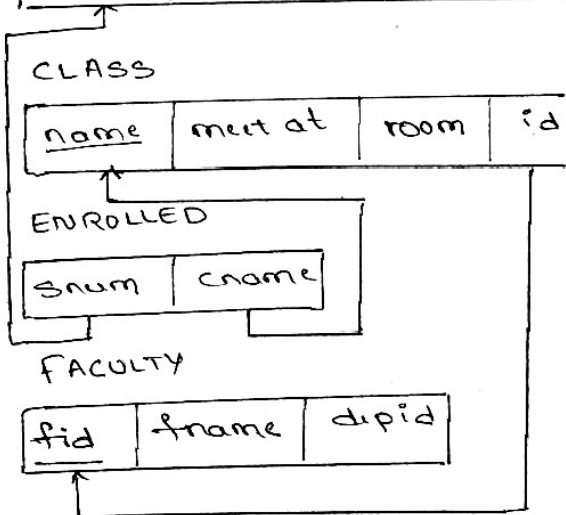 CLASS
name meet at room id
ENROLLED
snum cname
FACULTY
fid fname depid